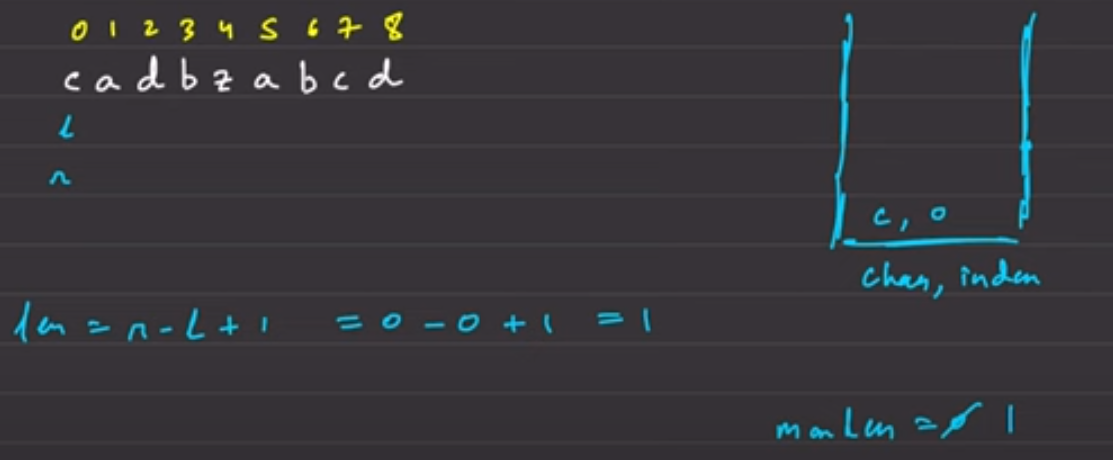 0 1 2 3 4 5 6 7 8
c a d b z a b c d
l
r
c, 0
char, index
len = r - L + 1 = 0 - 0 + 1 = 1
maxLen = 0 1